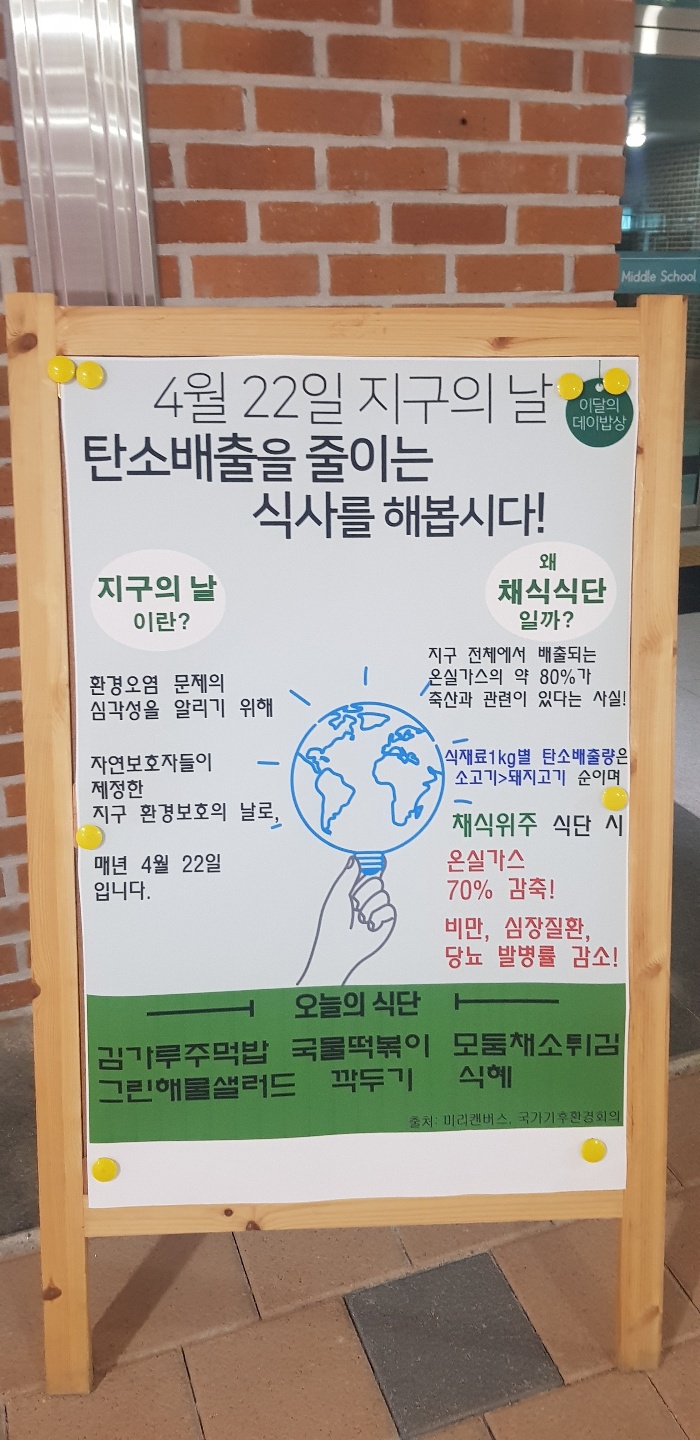 Middle School
4월 22일 지구의 날
이달의
데이밥상
탄소배출을 줄이는
식사를 해봅시다!
지구의 날
이란?
환경오염 문제의
심각성을 알리기 위해
자연보호자들이
제정한
지구 환경보호의 날로,
매년 4월 22일
입니다.
왜
채식식단
일까?
지구 전체에서 배출되는
온실가스의 약 80%가
축산과 관련이 있다는 사실!
식재료1kg별 탄소배출량은
소고기>돼지고기 순이며
채식위주 식단 시
온실가스
70% 감축!
비만, 심장질환,
당뇨 발병률 감소!
오늘의 식단
김가루주먹밥 국물떡볶이 모둠채소튀김
그린해물샐러드 깍두기 식혜
출처: 미리캔버스, 국가기후환경회의